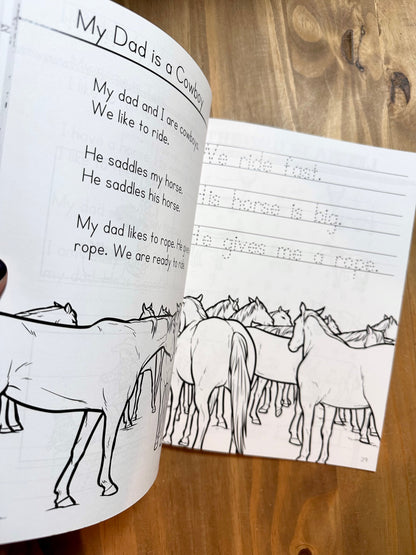 My Dad is a Cowboy
My dad and I are cowboys.
We like to ride.
He saddles my horse.
He saddles his horse.
My dad likes to rope. He
rope. We are ready to ride.
ride fast.
horse is big.
gives me a rope.
29